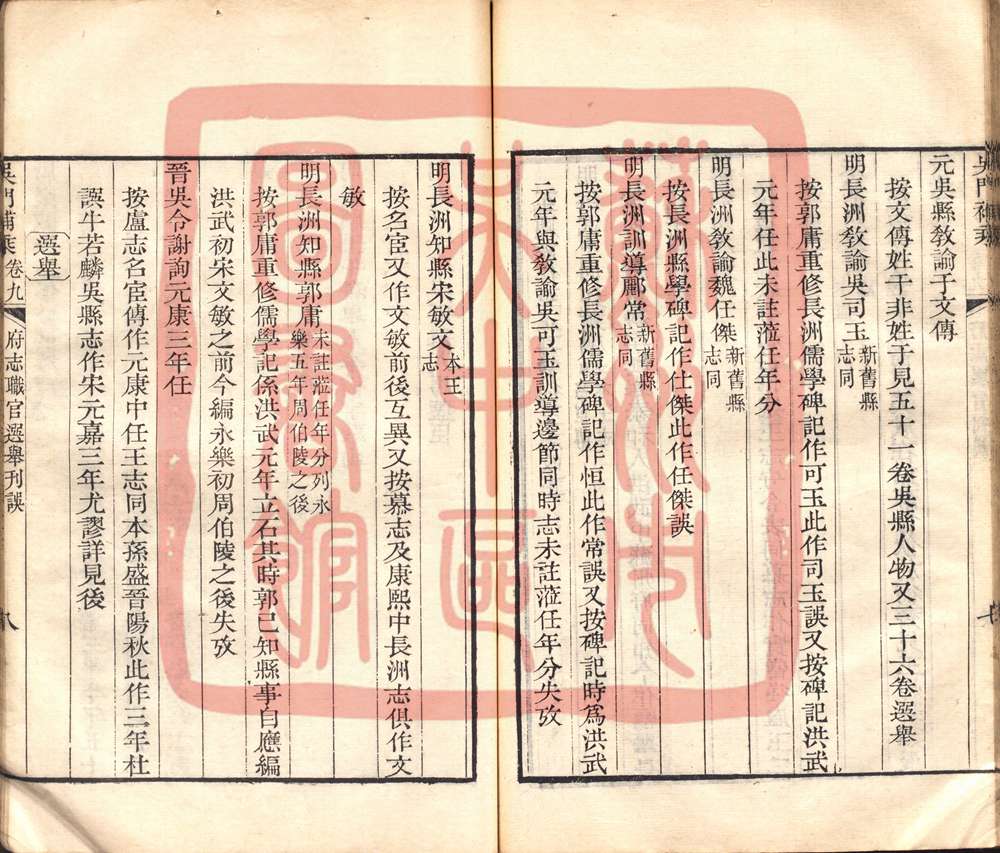 元吳縣教諭于文傳
按文傳姓干非姓于見五十一卷吳縣人物又三十六卷選舉
明長洲教諭吳司玉新舊縣志同
按郭庸重修長洲儒學碑記作可玉此作司玉誤又按碑記洪武
元年任此未註蒞任年分
明長洲教諭魏任傑新舊縣志同
按長洲縣學碑記作仕傑此作任傑誤
明長洲訓導郦常新舊縣志同
按郭庸重修長洲儒學碑記作恒此作常誤又按碑記時爲洪武
元年與教諭吳可玉訓導邊節同時志未註蒞任年分失攷
明長洲知縣宋敏文本王志
按名宦又作文敏前後互異又按慕志及康熙中長洲志俱作文
敏
明長洲知縣郭庸未註蒞任年分列永樂五年周伯陵之後
按郭庸重修儒學記係洪武元年立石其時郭已知縣事自應編
洪武初宋文敏之前今編永樂初周伯陵之後失攷
晉吳令謝詢元康三年任
按盧志名宦傳作元康中任王志同本孫盛晉陽秋此作三年杜
誤牛若麟吳縣志作宋元嘉三年尤謬詳見後
選舉
吳門補乘 卷九 府志職官選舉刊誤 八
蘇州市
文管會
圖書館